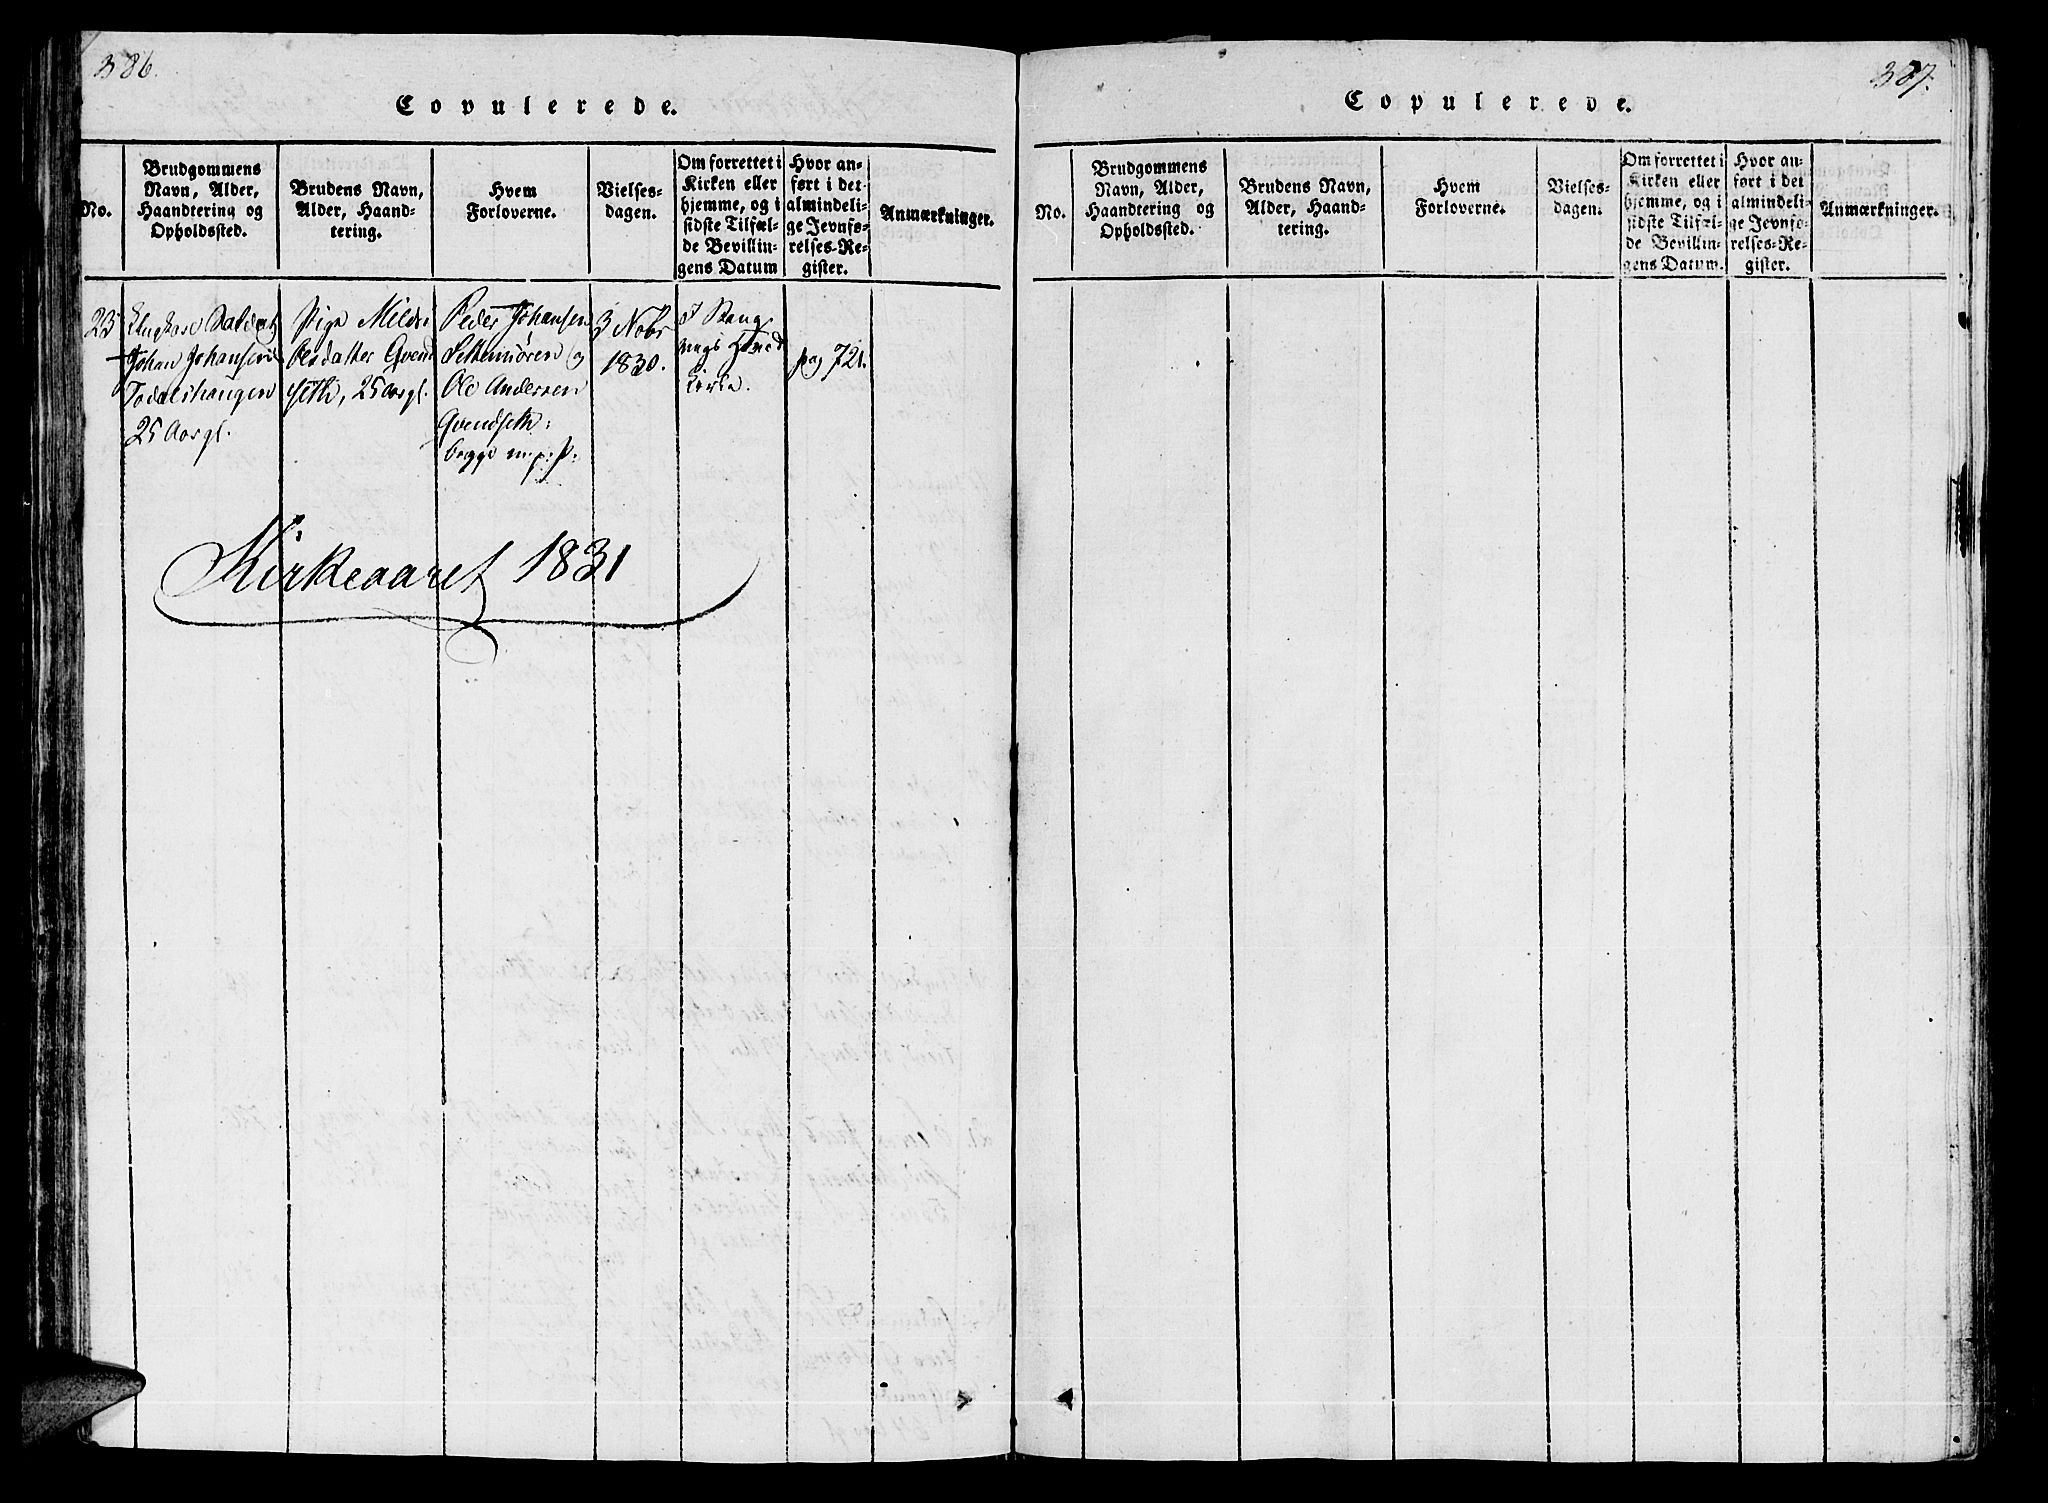 386.
Copulerede.
No.
Brudgommens
Navn, Alder,
Haandtering og
Opholdssted.
Brudens Navn,
Alder, Haand-
tering.
Hvem
Forloverne.
Vielses-
dagen.
Om forrettet i
Kirken eller
hjemme, og i
sidste Tilfæl-
de Bevillin-
gens Datum
Hvor an-
ført i det
almindeli-
ge Jevnfø-
relses-Re-
gister.
Anmærkninger.
23
Johan Johansen
Todalshaugen
25 Aar gl.
Pige Mildri
Olsdatter Qvend
seth, 25 aar gl.
Peder Johansen
og
Ole Andersen
Qvendseth:
begge m. p. P.
3 Nobr
1830.
I Stang
viigs Hoved
kirke.
pag 721.
Kirkeaaret 1831
387.
Copulerede.
No.
Brudgommens
Navn, Alder,
Haandtering og
Opholdssted.
Brudens Navn,
Alder, Haand-
tering.
Hvem
Forloverne.
Vielses-
dagen.
Om forrettet i
Kirken eller
hjemme, og i
sidste Tilfæl-
de Bevillin-
gens Datum.
Hvor an-
ført i det
almindeli-
ge Jevnfø-
relses-Re-
gister.
Anmærkninger.